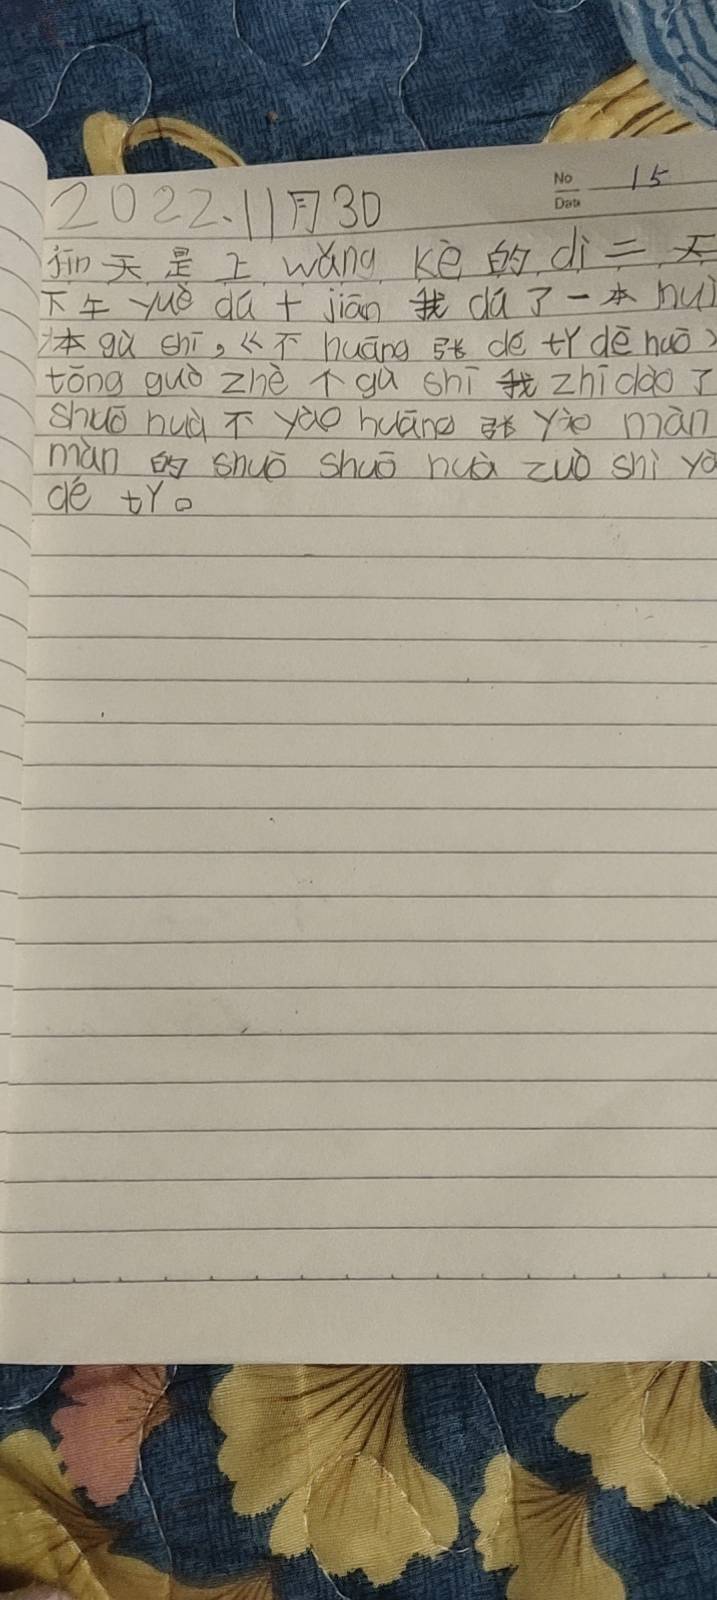 No 15
Date
2022.11月30
jīn天是上wǎng kè的dì二天
下午yuè dú十jiān我dú了一本huì
本gù shī，《不huāng张dé tǐ dē huō》
tōng guò zhè个gù shī我zhī dào了
shuō huà不yào huāng张yào màn
màn的shuō shuō huà zuò shì yà
dé tǐ。